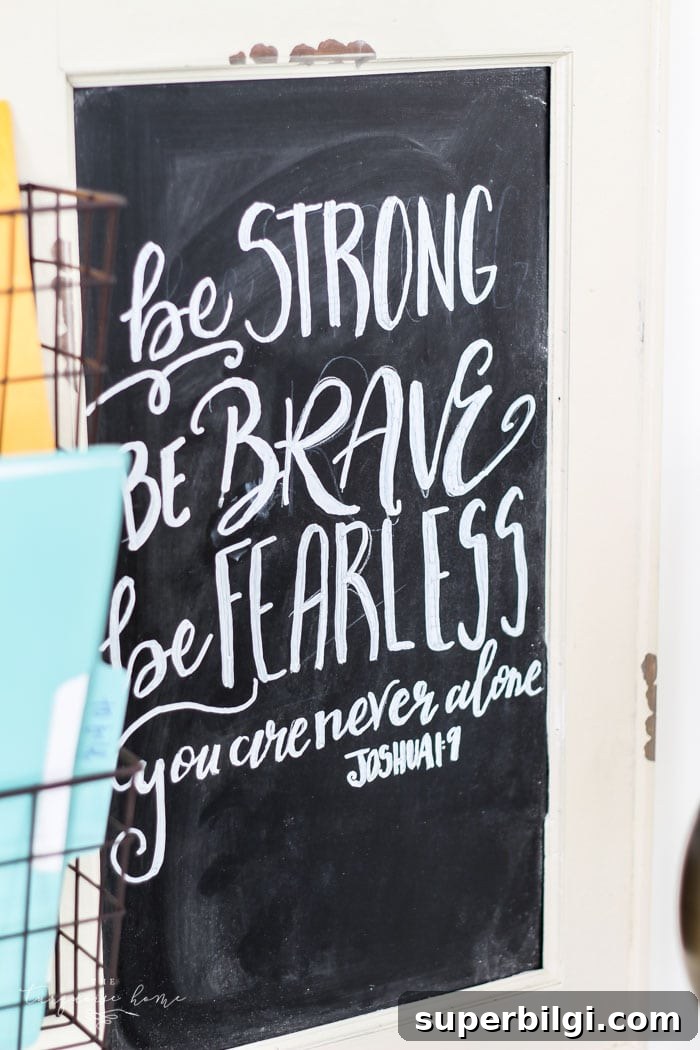 be STRONG
BE BRAVE
be FEARLESS
you are never alone
JOSHUA 1:9
THE
turquoise home
superbilgi.com